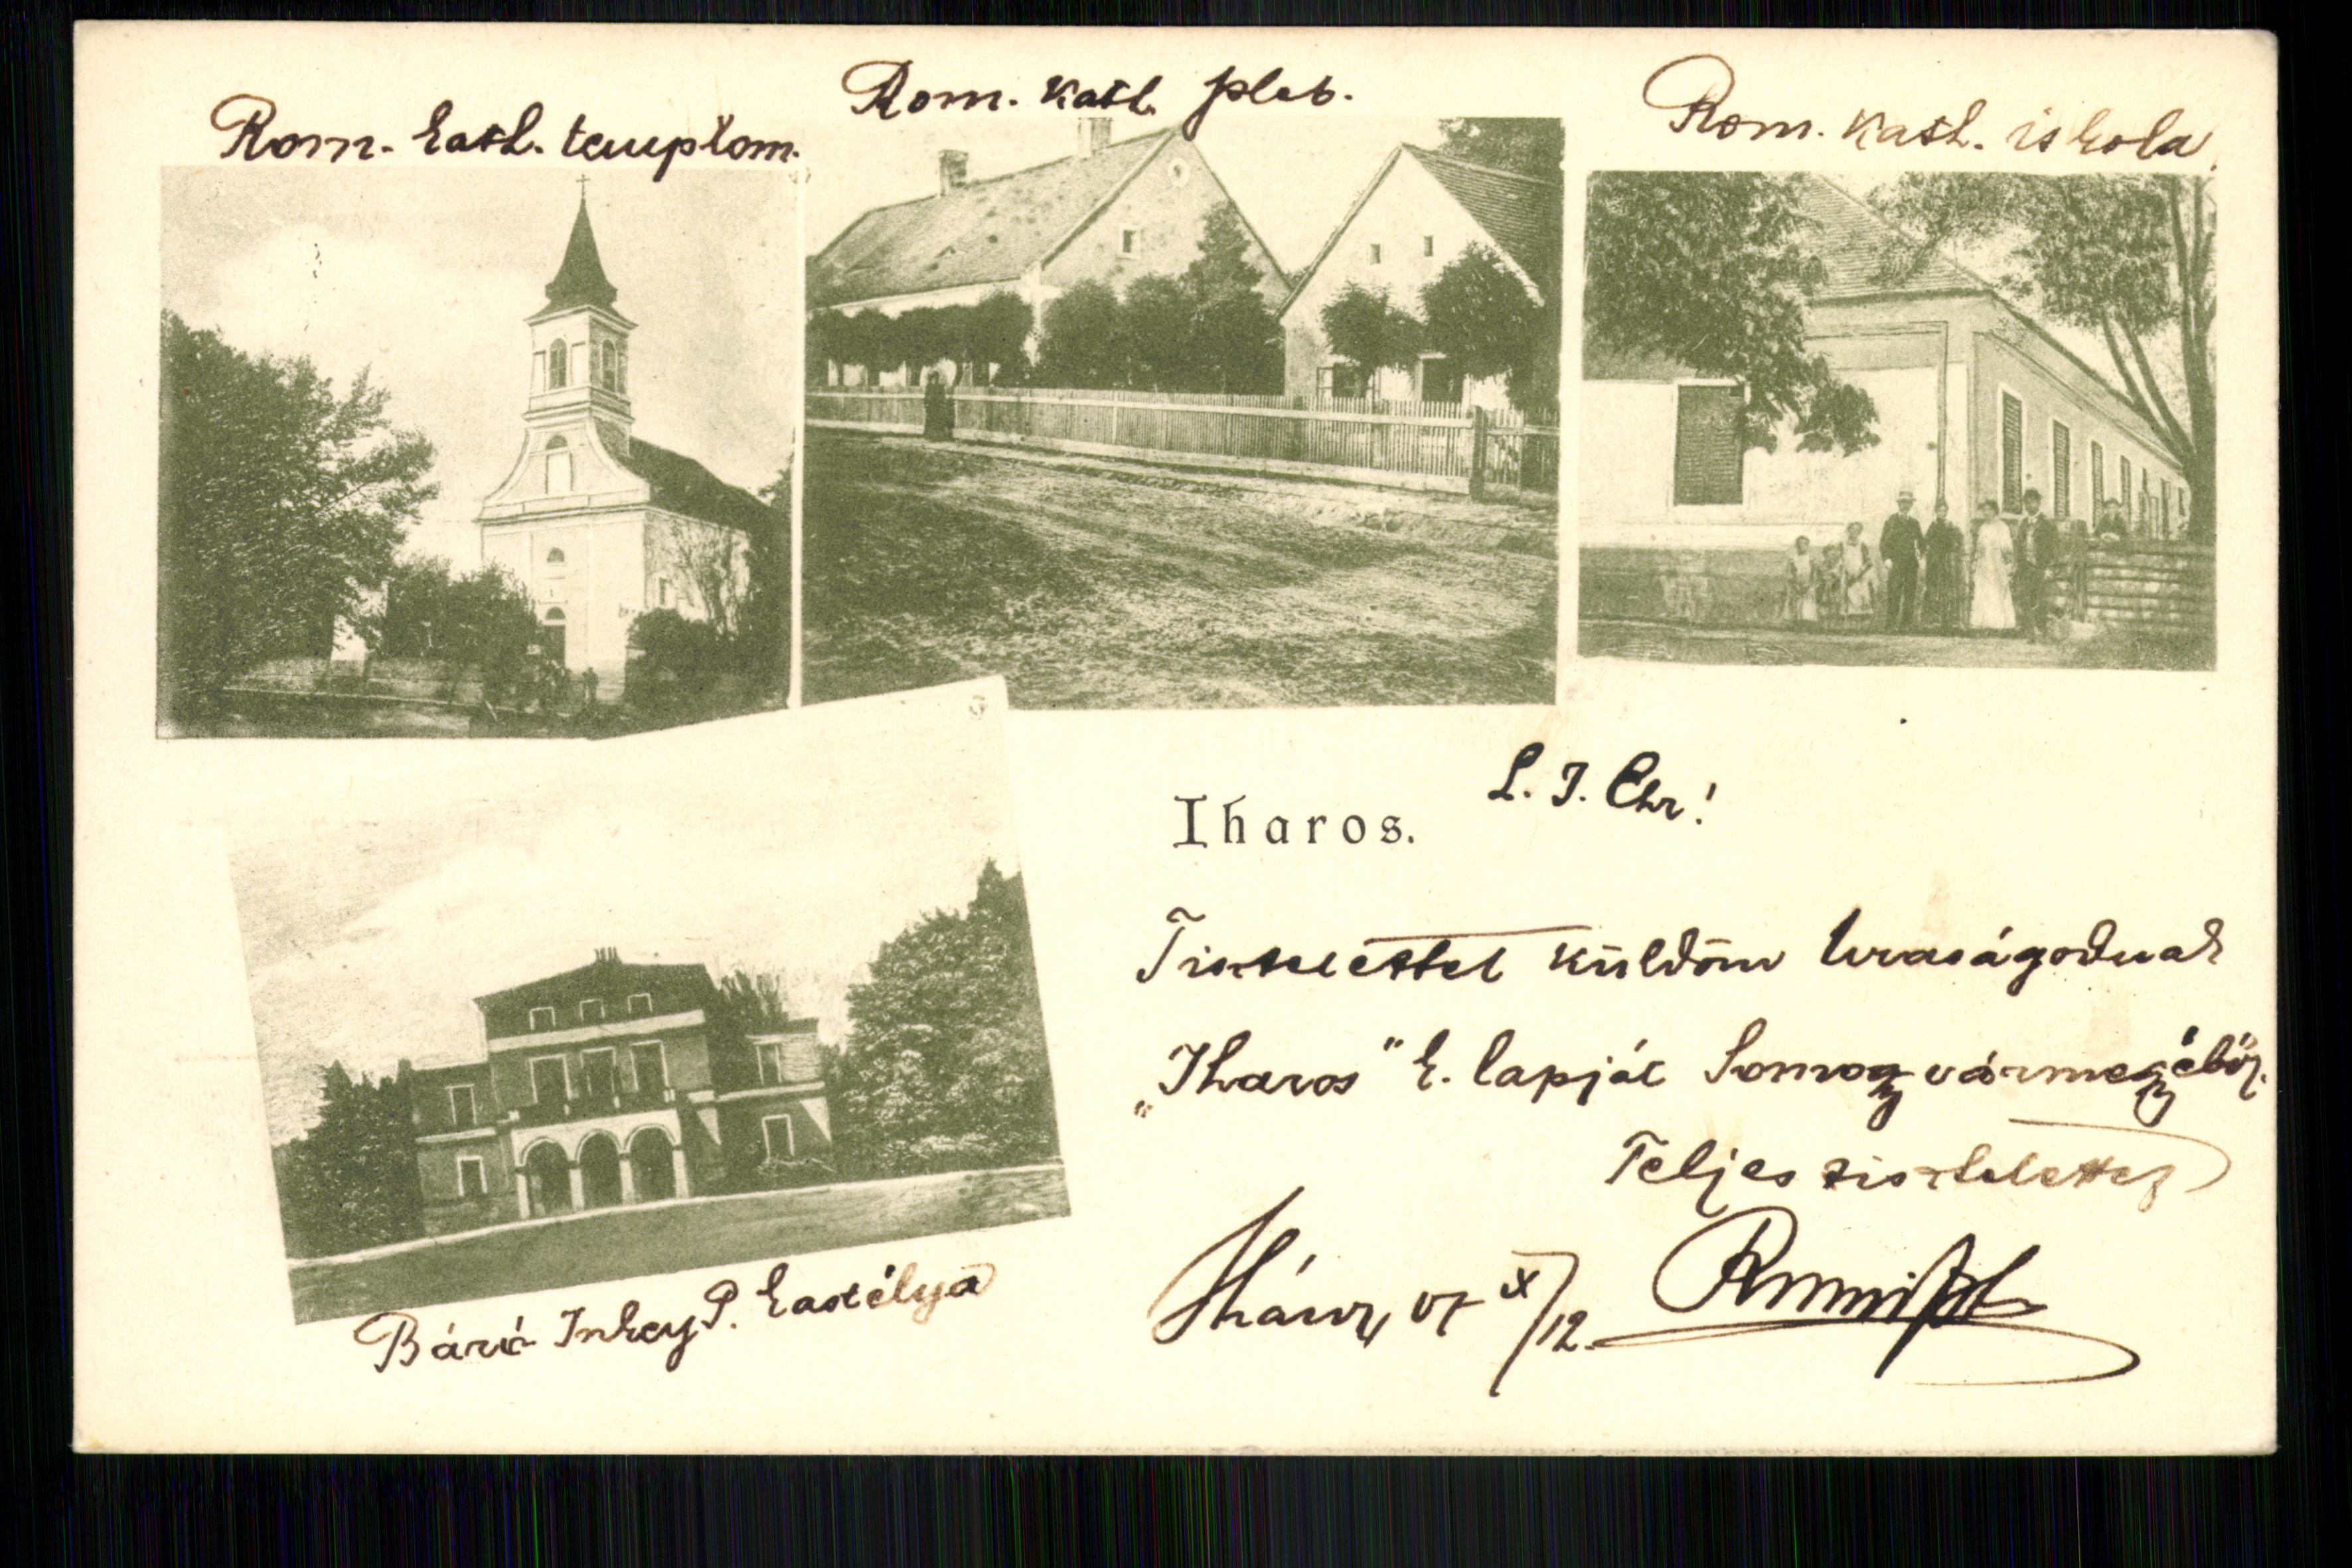 Rom. kath. templom.
Rom. kath. pleb.
Rom. kath. iskola.
Iharos.
L. J. Chr!
Tisztelettel küldöm Uraságodnak
„Iharos" k. lapját Somogyvármegyéből.
Teljes tisztelettel
Iháros, X/12.
Báró Inkey P. kastélya